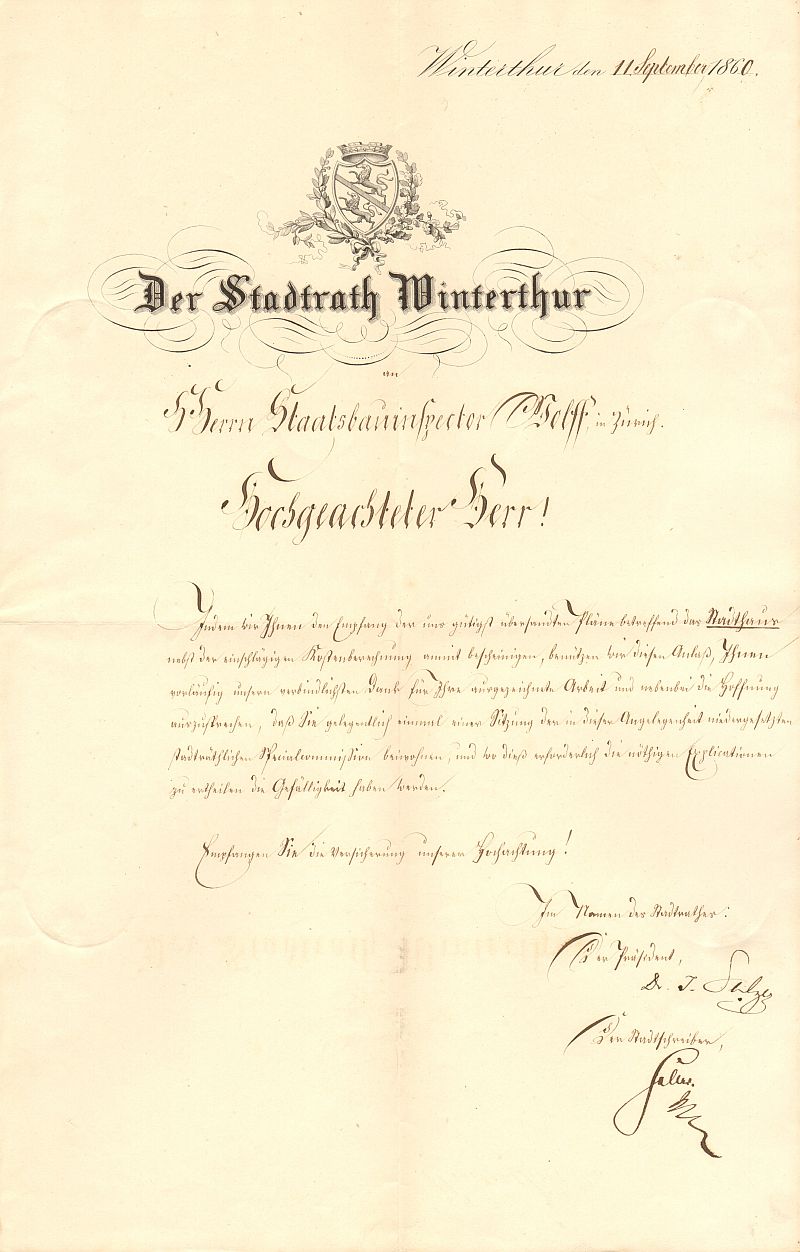 Winterthur den 11. September 1860.
Der Stadtrath Winterthur
an
HHerrn Staatsbauinspector Wolff, in Zürich.
Hochgeachteter Herr!
Indem wir Ihnen den Empfang der uns gütigst übersandten Pläne betreffend das Stadthaus
nebst der einschlägigen Kostenberechnung anmit bescheinigen, benützen wir diesen Anlaß, Ihnen
vorläufig unsern verbindlichsten Dank für Ihre ausgezeichnete Arbeit und nebenbei die Hoffnung
auszusprechen, daß Sie gelegentlich einmal einer Sitzung der in dieser Angelegenheit niedergesetzten
stadträthlichen Specialcommission beiwohnen, und wo dieß erforderlich die nöthigen Explicationen
zu ertheilen die Gefälligkeit haben werden.
Empfangen Sie die Versicherung unserer Hochachtung!
Im Namen des Stadtrathes:
Der Präsident,
Dr. J. Sulzer
Der Stadtschreiber,